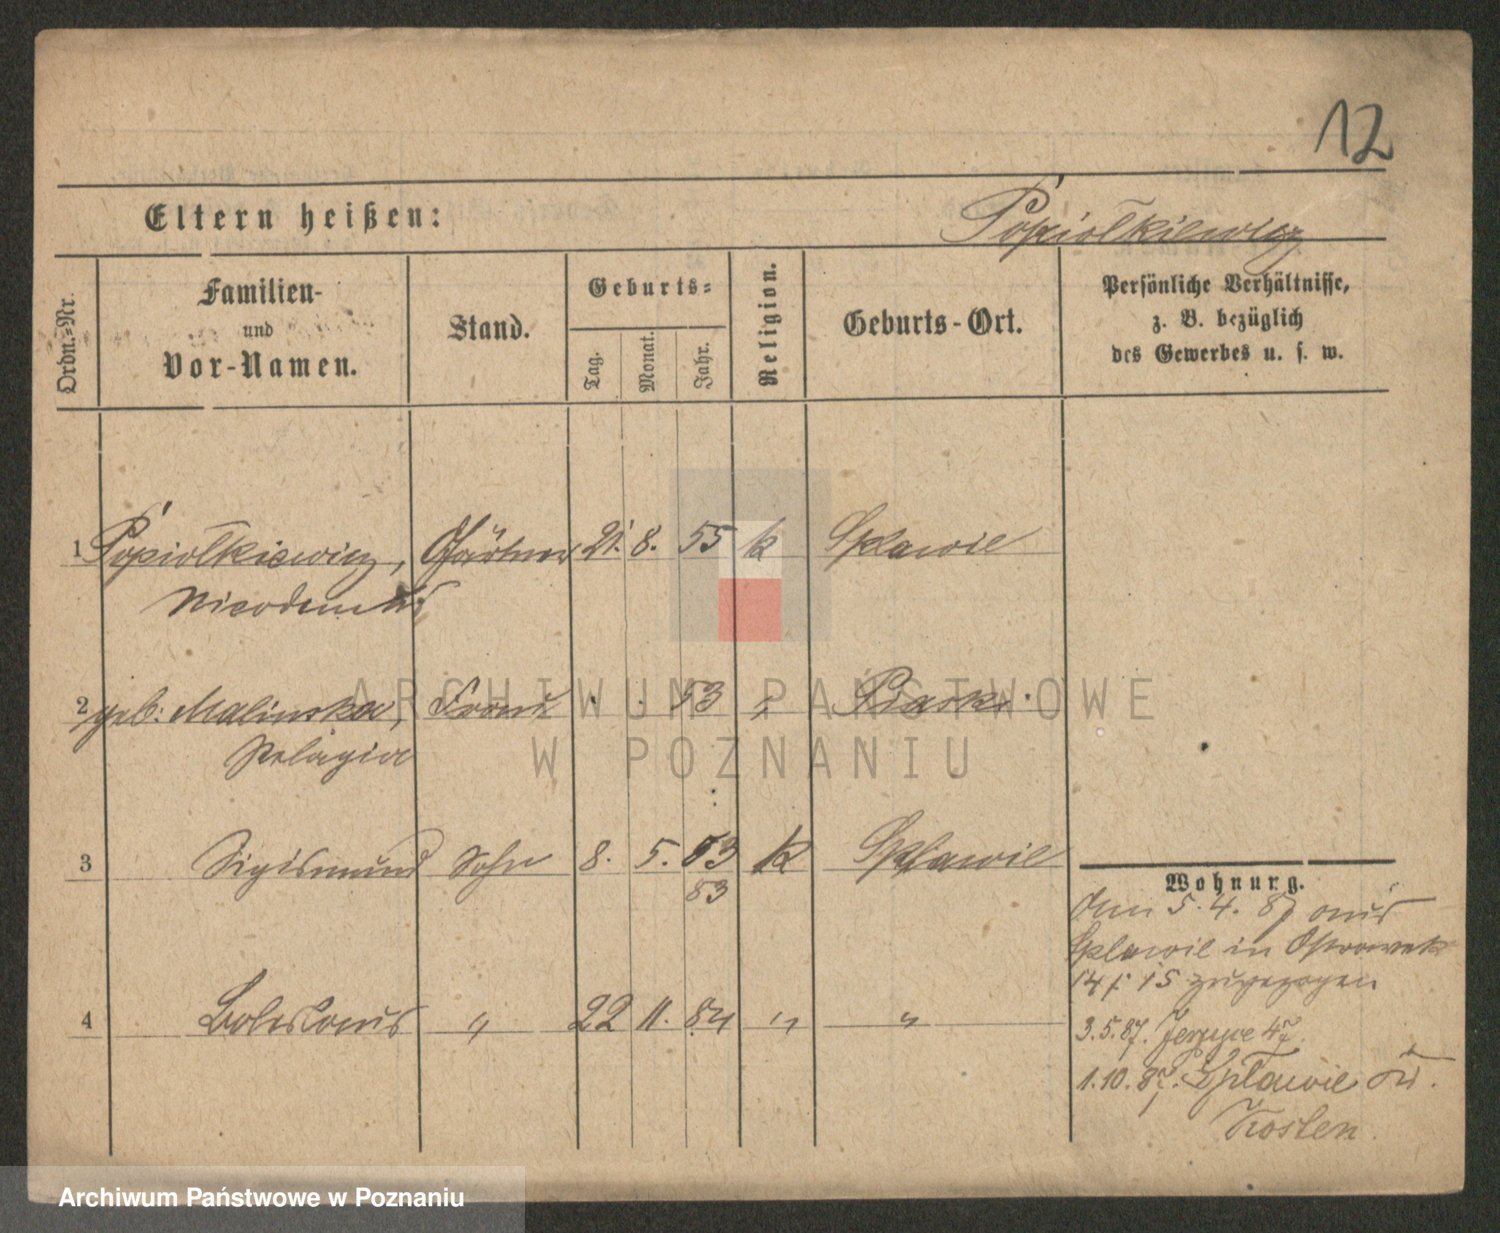 12
Eltern heißen:
Popiołkiewicz
Ordn.-Nr.
Familien-
und
Vor-Namen.
Stand.
Geburts-
Tag.
Monat.
Jahr.
Religion.
Geburts-Ort.
Persönliche Verhältnisse,
z. B. bezüglich
des Gewerbes u. s. w.
1 Popiołkiewicz, Gärtner 21. 8. 55 k Splawie
Nicodemus
2 geb. Malinska, Frau 53 Piaski
Pelagia
3 Sigismund Sohn 8. 5. 83 k Splawie
83
4 Boleslaus " 22 11. 84 " "
Wohnung.
Am 5. 4. 87 aus
Splawie in Ostrowek
14/15 zugezogen
3.5.87. Jerzyce 47
1.10.87. Splawie
Kosten
ARCHIWUM PAŃSTWOWE
W POZNANIU
Archiwum Państwowe w Poznaniu